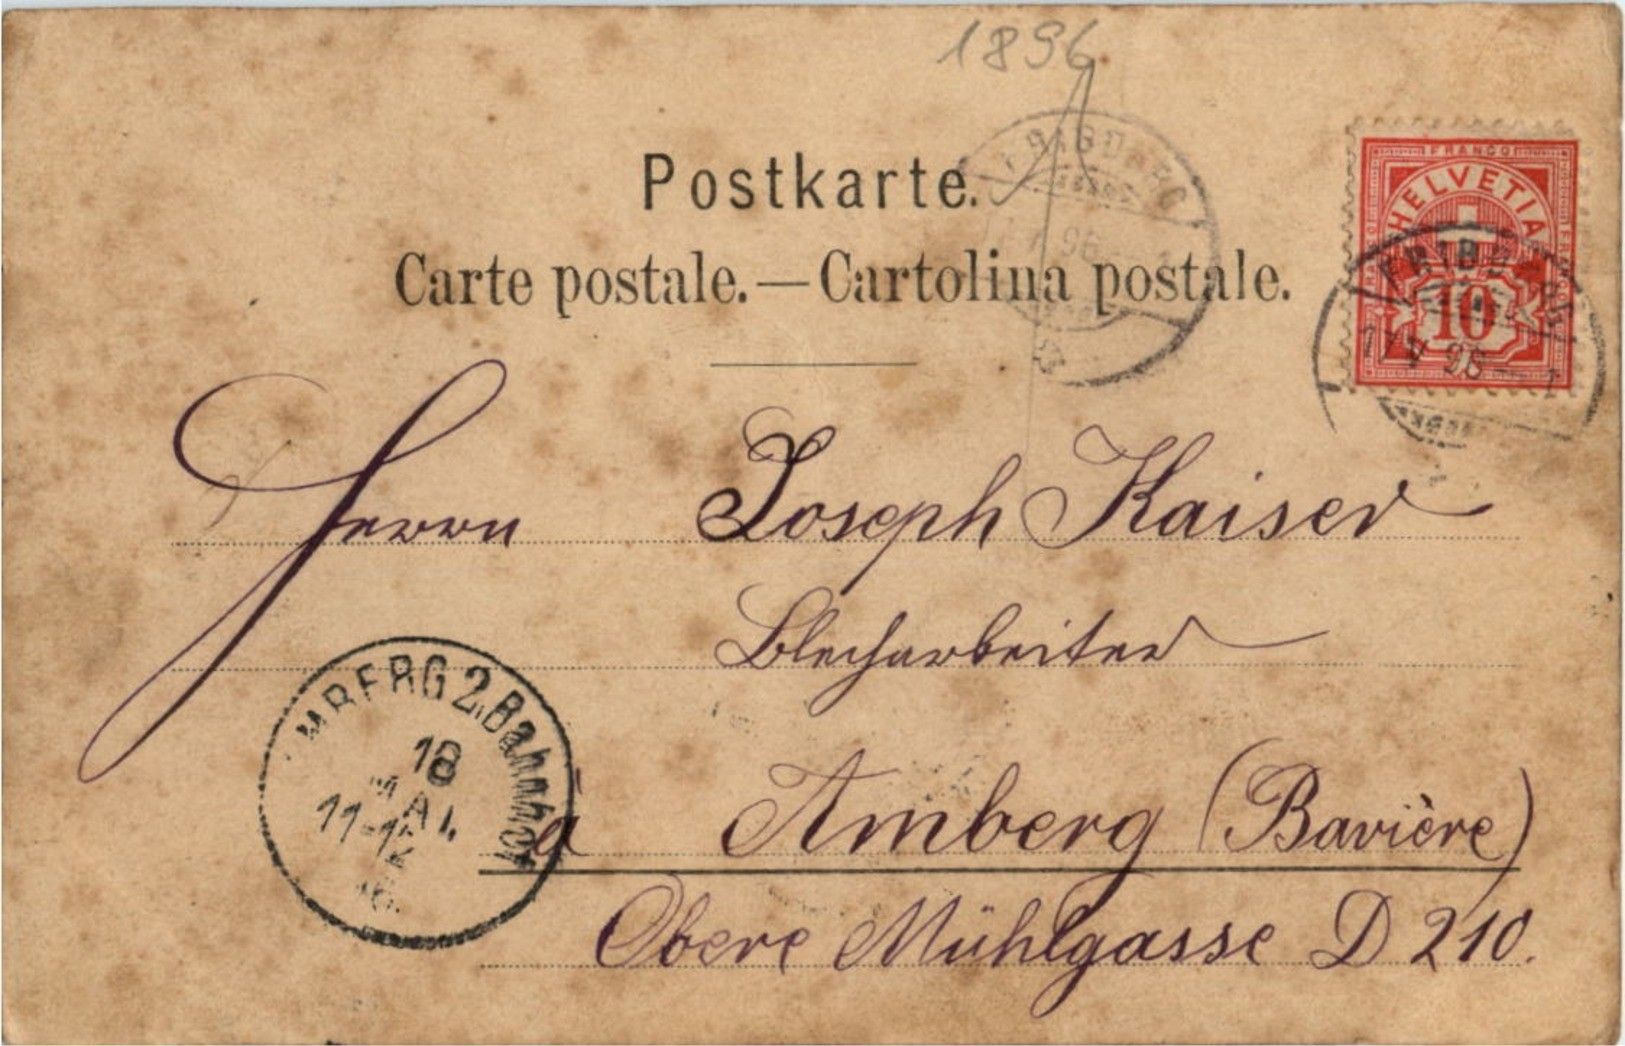 1896
Postkarte.
Carte postale.—Cartolina postale.
FRIBOURG
96
FRANCO
HELVETIA
10
FRIBOURG
17 V 96—1
Herrn Joseph Kaiser
Blecharbeiter
à Amberg (Bavière)
Obere Mühlgasse D 210.
AMBERG 2. Bahnhof
18
MAI.
11-12
96.